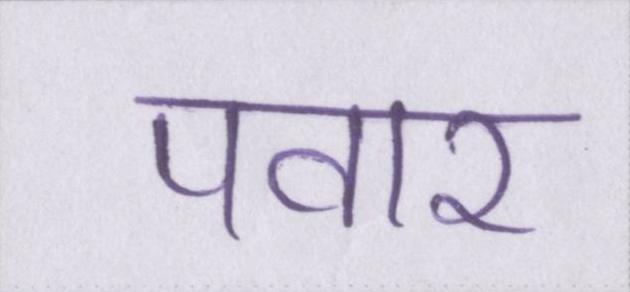 पवार